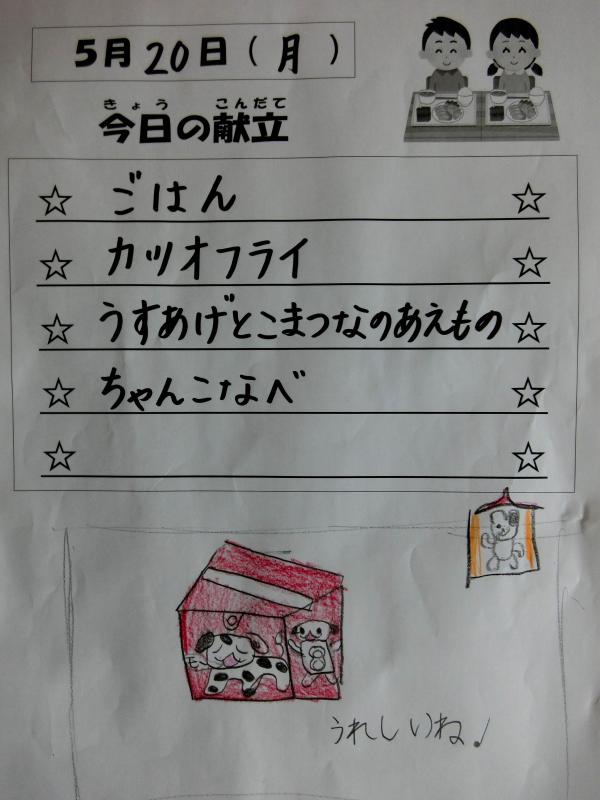 5月20日(月)
きょう こんだて
今日の献立
☆ ごはん ☆
☆ カツオフライ ☆
☆ うすあげとこまつなのあえもの ☆
☆ ちゃんこなべ ☆
☆ ☆
8
うれしいね♪